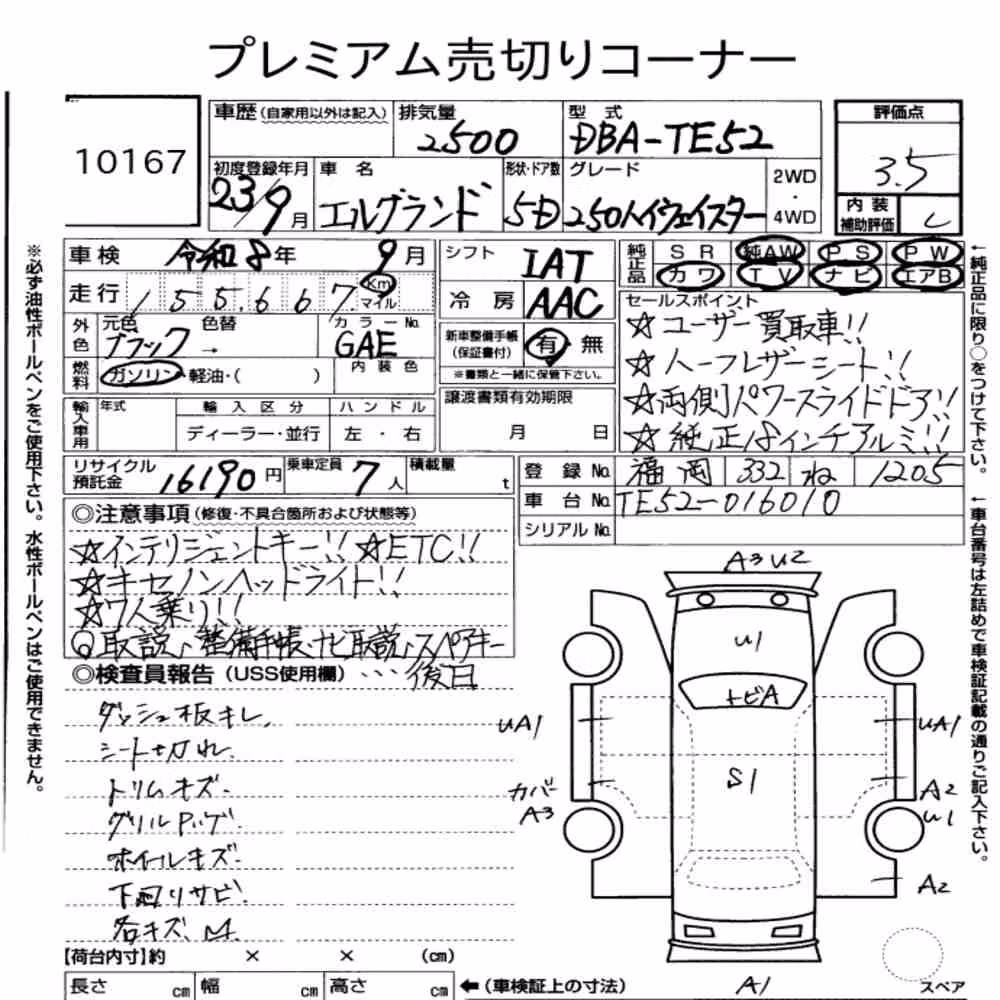 プレミアム売切りコーナー
10167
車歴(自家用以外は記入)
排気量 2500
型式 DBA-TE52
評価点 3.5
初度登録年月 23/9月
車名 エルグランド
形状・ドア数 5D
グレード 250ハイウェイスター
2WD・4WD
内装補助評価 C
車検 令和8年 9月
走行 155,667 Km マイル
シフト IAT
冷房 AAC
純正品 SR 純AW PS PW
カワ TV ナビ エアB
外色 元色 ブラック 色替 → カラーNo. GAE
燃料 ガソリン・軽油・( ) 内装色
新車整備手帳(保証書付) 有・無
※書類と一緒に保管下さい。
セールスポイント
☆ユーザー買取車!!
☆ハーフレザーシート!!
☆両側パワースライドドア!!
☆純正18インチアルミ!!
輸入車用 年式 輸入区分 ハンドル
ディーラー・並行 左・右
譲渡書類有効期限
月 日
リサイクル預託金 16190円
乗車定員 7人
積載量 t
登録No. 福岡 332 ね 1205
車台No. TE52-016010
シリアルNo.
◎注意事項(修復・不具合箇所および状態等)
☆インテリジェントキー!! ☆ETC!!
☆キセノンヘッドライト!!
☆7人乗り!!
◎取説、整備手帳、ナビ取説、スペアキー
…後日
◎検査員報告(USS使用欄)
ダッシュ板キレ.
シート切れ.
トリムキズ.
ホイールキズ.
下回りサビ
各キズ、凹.
A3 U2
U1
トビA
UA1
UA1
S1
カバーA3
A2
U1
A2
A1
スペア
【荷台内寸】約 × × (cm)
長さ cm 幅 cm 高さ cm ←(車検証上の寸法)
※必ず油性ボールペンをご使用下さい。水性ボールペンはご使用できません。
←純正品に限り○をつけて下さい。
←車台番号は左詰めで車検証記載の通りご記入下さい。